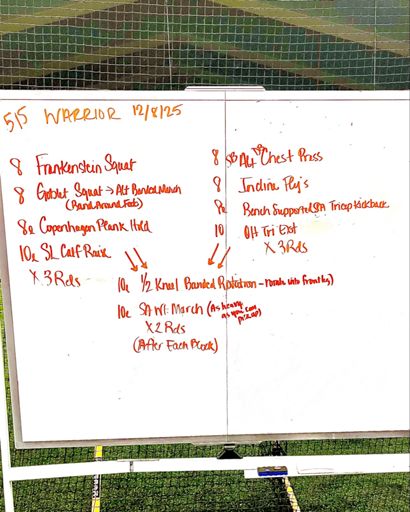 515 WARRIOR 12/8/25
8 Frankenstein Squat
8 Goblet Squat → Alt Banded March
(Band Around Feet)
8e Copenhagen Plank Hold
10e SL Calf Raise
x 3 Rds
8 DB Alt Chest Press
8 Incline Fly's
8e Bench Supported SA Tricep Kickback
10 OH Tri Ext
x 3 Rds
10e 1/2 Kneel Banded Rotation -
10e SA Wt. March (As heavy
as you can
pick up)
x 2 Rds
(After Each Block)